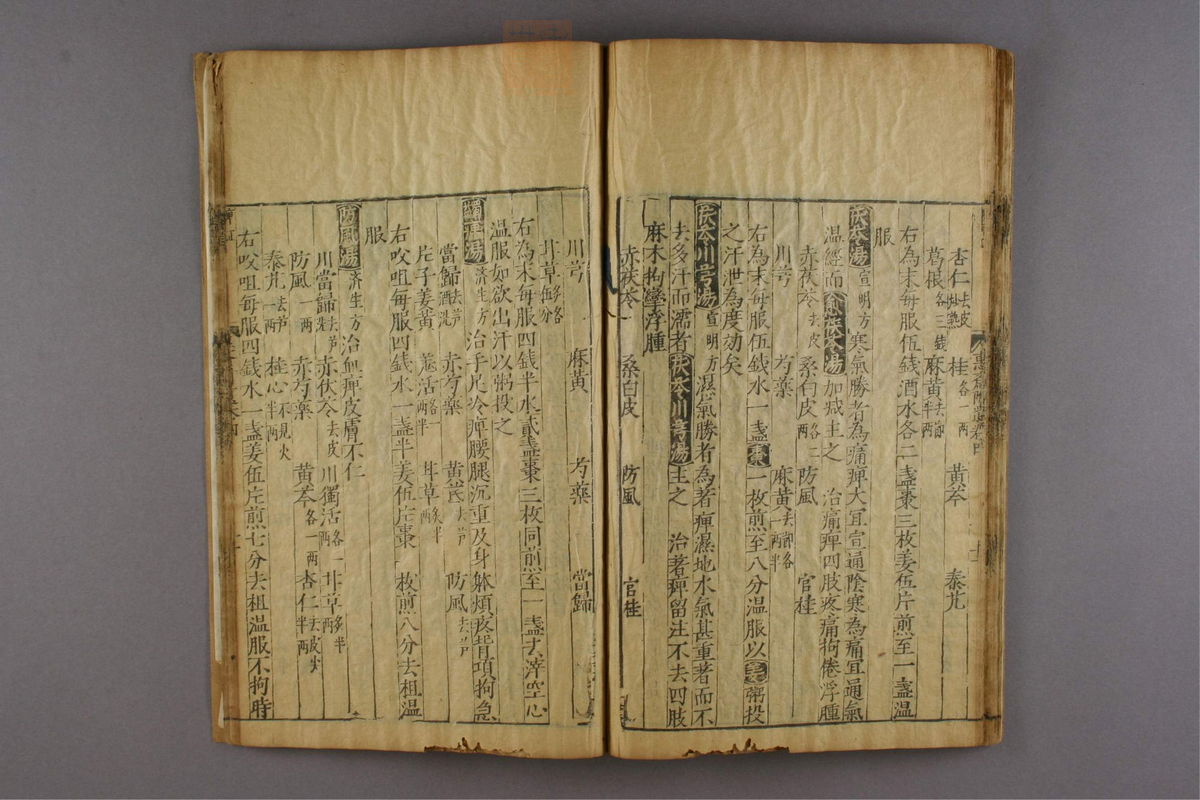 杏仁去皮炒熟 桂各一兩 黃芩 秦艽
葛根各三錢 麻黃去節半兩
右為末每服伍錢酒水各二盞棗三枚姜伍片煎至一盞溫
服
茯苓湯宣明方寒氣勝者為痛痺大宜宣通陰寒為痛宜通氣
溫經而愈茯苓湯加減主之 治痛痺四肢疼痛拘倦浮腫
赤茯苓去皮 桑白皮各二兩 防風 官桂
川芎 芍藥 麻黃去節各一兩半
右為末每服伍錢水一盞棗一枚煎至八分溫服以姜粥投
之汗泄為度効矣
茯苓川芎湯宣明方濕氣勝者為著痺濕地水氣甚重著而不
去多汗而濡者茯苓川芎湯主之 治著痺留注不去四肢
麻木拘攣浮腫
赤茯苓 桑白皮 防風 官桂
川芎 麻黃 芍藥 當歸
甘草炙各等分
右為末每服四錢半水貳盞棗三枚同煎至一盞去滓空心
溫服如欲出汗以粥投之
蠲痺湯濟生方治手足冷痺腰腿沉重及身躰煩疼背項拘急
當歸去芦酒 赤芍藥 黃芪去芦 防風去芦
片子姜黃 羌活各一兩半 甘草炙半兩
右㕮咀每服四錢水一盞半姜伍片棗一枚煎八分去柤溫
服
防風湯濟生方治血痺皮膚不仁
川當歸去芦 赤伏苓去皮 川獨活各一兩 甘草炙半兩
防風一兩 赤芍藥 黃芩各一兩 杏仁去皮尖半兩
秦艽去芦一兩 桂心不見火半兩
右㕮咀每服四錢水一盞姜伍片煎七分去柤溫服不拘時